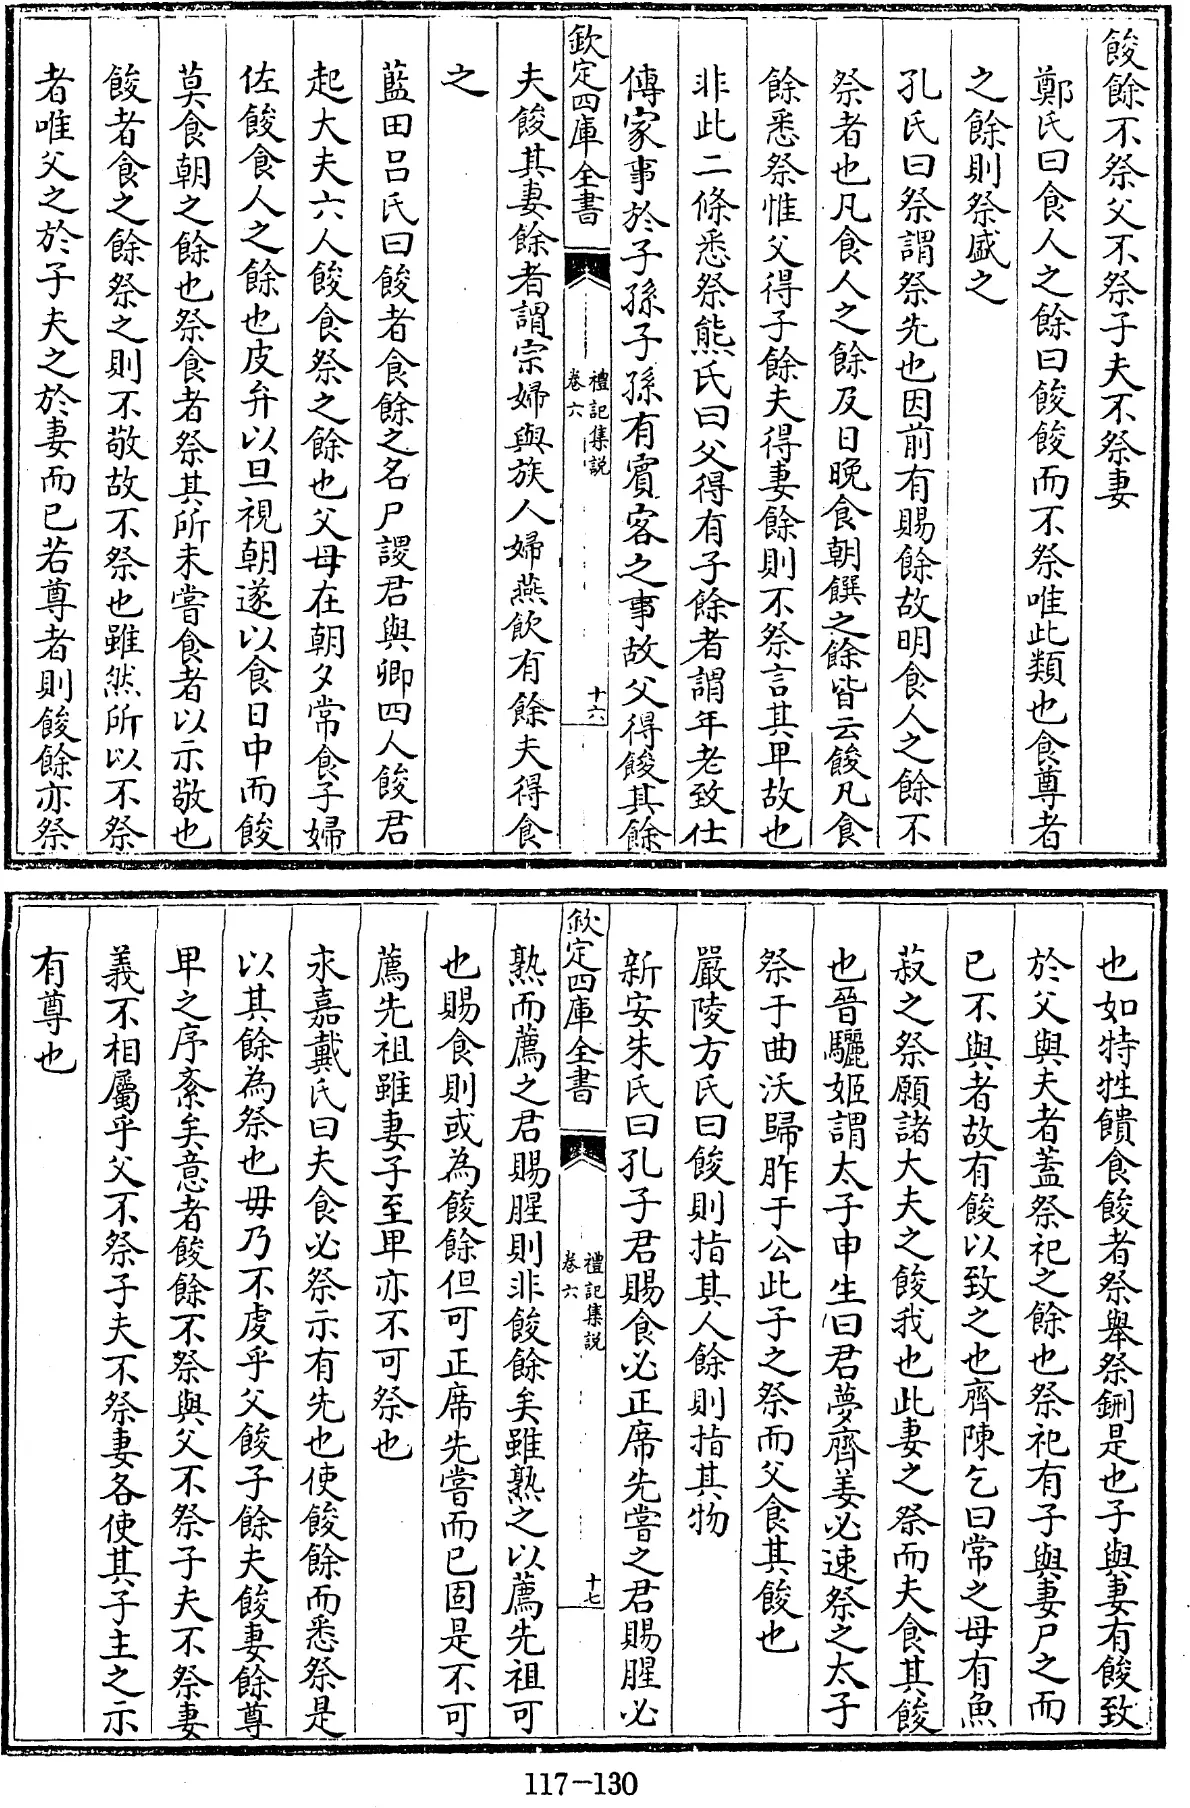 餕餘不祭父不祭子夫不祭妻
鄭氏曰食人之餘曰餕餕而不祭唯此類也食尊者
之餘則祭盛之
孔氏曰祭謂祭先也因前有賜餘故明食人之餘不
祭者也凡食人之餘及日晚食朝饌之餘皆云餕凡食
餘悉祭惟父得子餘夫得妻餘則不祭言其卑故也
非此二條悉祭熊氏曰父得有子餘者謂年老致仕
傳家事於子孫子孫有賔客之事故父得餕其餘
欽定四庫全書
禮記集說
卷六
十六
夫餕其妻餘者謂宗婦與族人婦燕飲有餘夫得食
之
藍田呂氏曰餕者食餘之名尸謖君與卿四人餕君
起大夫六人餕食祭之餘也父母在朝夕常食子婦
佐餕食人之餘也皮弁以旦視朝遂以食日中而餕
莫食朝之餘也祭食者祭其所未嘗食者以示敬也
餕者食之餘祭之則不敬故不祭也雖然所以不祭
者唯父之於子夫之於妻而已若尊者則餕餘亦祭
也如特牲饋食餕者祭舉祭鉶是也子與妻有餕致
於父與夫者蓋祭祀之餘也祭祀有子與妻尸之而
已不與者故有餕以致之也齊陳乞曰常之母有魚
菽之祭願諸大夫之餕我也此妻之祭而夫食其餕
也晉驪姬謂太子申生曰君夢齊姜必速祭之太子
祭于曲沃歸胙于公此子之祭而父食其餕也
嚴陵方氏曰餕則指其人餘則指其物
新安朱氏曰孔子君賜食必正席先嘗之君賜腥必
欽定四庫全書
禮記集說
卷六
十七
熟而薦之君賜腥則非餕餘矣雖熟之以薦先祖可
也賜食則或為餕餘但可正席先嘗而已固是不可
薦先祖雖妻子至卑亦不可祭也
永嘉戴氏曰夫食必祭示有先也使餕餘而悉祭是
以其餘為祭也毋乃不虔乎父餕子餘夫餕妻餘尊
卑之序紊矣意者餕餘不祭與父不祭子夫不祭妻
義不相屬乎父不祭子夫不祭妻各使其子主之示
有尊也
117-130